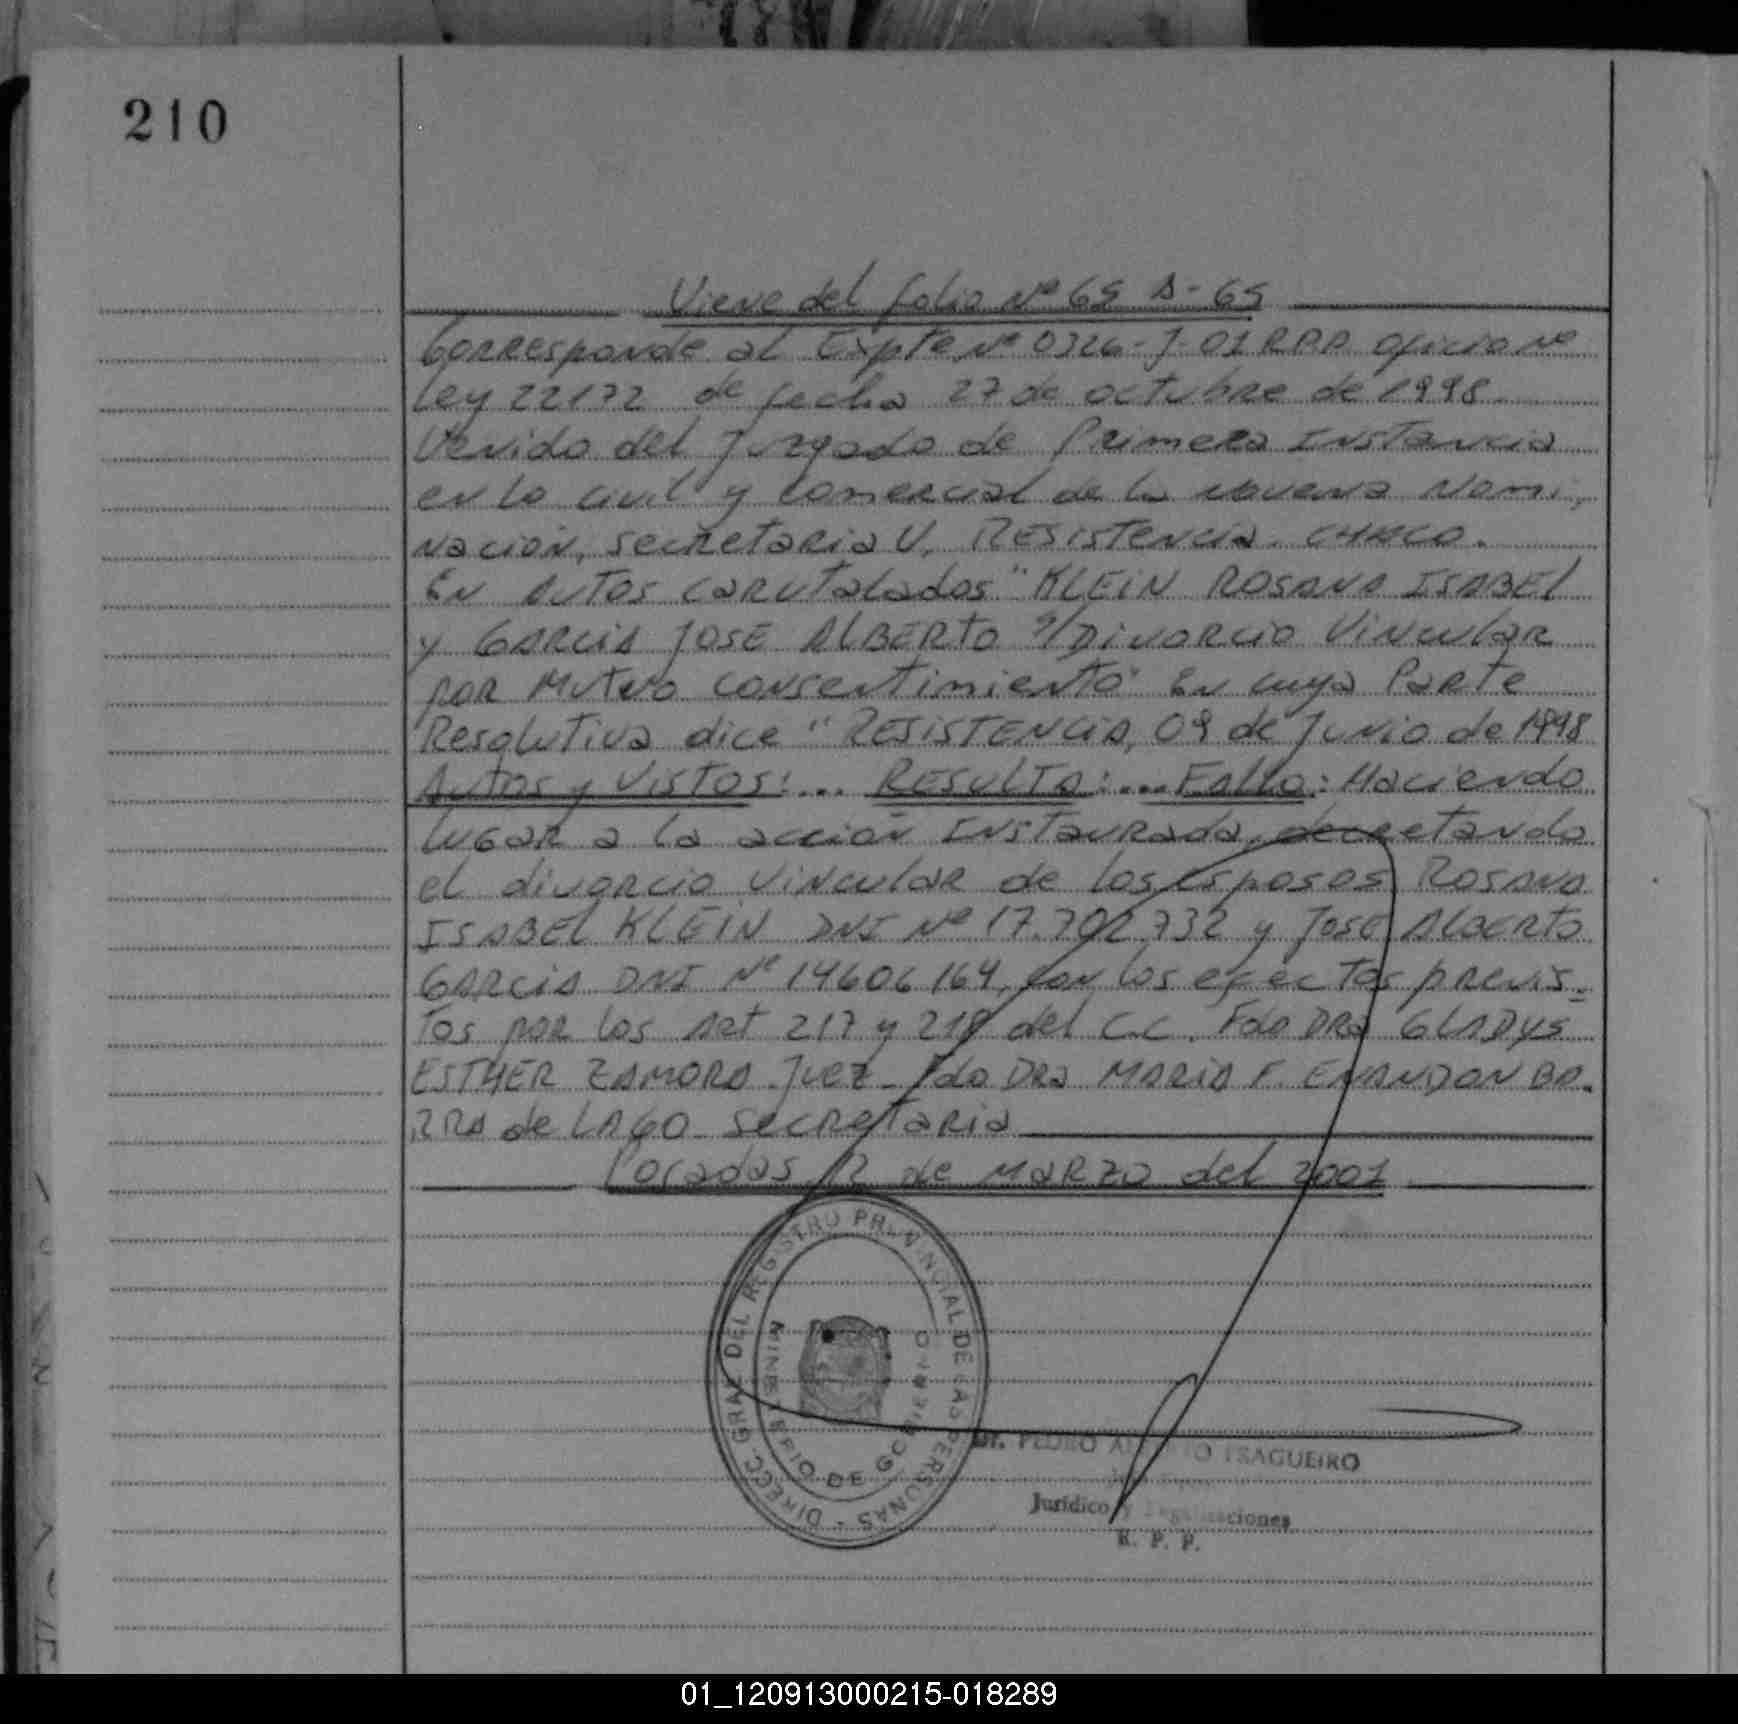 210
Viene del folio Nº 65 A-65
Corresponde al Expte Nº 0326-J-01 R.P.P. oficio nº
Ley 22172 de fecha 27 de octubre de 1998.
Venido del Juzgado de Primera Instancia
en lo civil y comercial de la novena Nomi,
nación, secretaria U, RESistencia. CHACO.
En Autos carutalados "KLEIN ROSANA ISABEL
y GARCIA JOSE ALBERTO S/Divorcio Vincular
por Mutuo consentimiento" En cuya Parte
Resolutiva dice "RESISTENCIA, 09 de Junio de 1998
Autos y Vistos:... RESULTA:... Fallo: Haciendo
lugar a la acción Instaurada, decretando
el divorcio vincular de los esposos ROSANA
ISABEL KLEIN DNI Nº 17.702.732 y JOSE ALBERTO
GARCIA DNI Nº 14606164, con los efectos previs-
tos por los Art 217 y 218 del C.C. Fdo DRA GLADYS
ESTHER ZAMORA. Juez - Fdo Dra MARIA F. BA-
RRA de LAGO secretaria
Posadas 12 de MARZO del 2001
DIRECC. GRAL DEL REGISTRO PROVINCIAL DE LAS PERSONAS -
MINISTERIO DE GOBIERNO
Dr. PEDRO TRAGUEIRO
Jurídico y Legalizaciones
R. P. P.
01_120913000215-018289